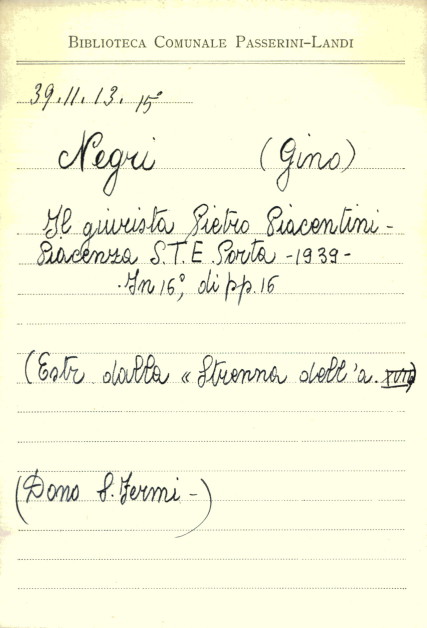 BIBLIOTECA COMUNALE PASSERINI-LANDI
39.11.13.15°
Negri (Gino)
Il giurista Pietro Piacentini -
Piacenza S.T.E. Porta - 1939 -
In 16°, di pp. 16
(Estr. dalla « Strenna dell'a. XVII)
(Dono S. Fermi -)